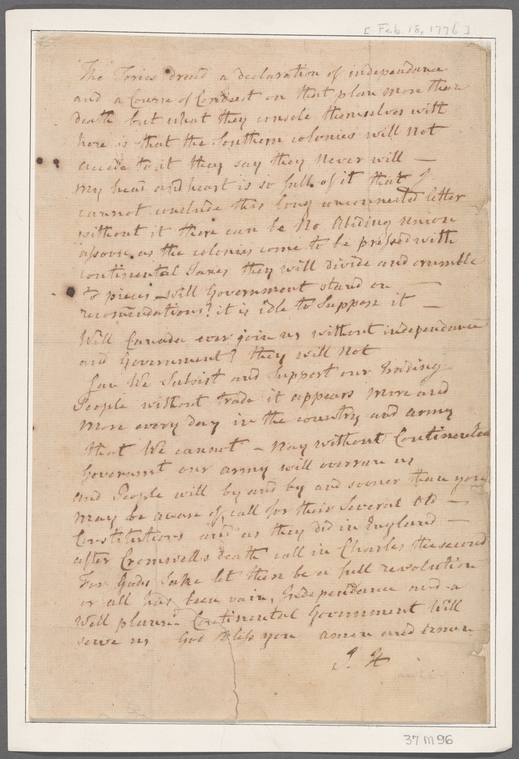 [Feb. 18, 1776]
The Tories dread a declaration of independance
and a Course of Conduct on that plan more than
death but what they console themselves with
here is that the Southern colonies will not
accede to it they say they Never will —
my head and heart is so full of it that I
cannot conclude this long unconnected letter
without it there can be No Abiding Union
assoon as the colonies come to be pressed with
continental Taxes they will divide and crumble
to pieces — will Government stand on
recomendations? it is idle to Suppose it —
Will Canada ever join us without independance
and Government? they will Not
Can We Subsist and Support our trading
People without trade it appears more and
more every day in the country and army
that We cannot — Nay without Continental
Governmt our army will overrun us
and People will by and by and sooner than you
may be aware of, call for their Several old —
Constitutions and as they did in England —
after Cromwells death call in Charles the second
For Gods Sake let there be a full revolution
or all has been vain, Independance and a
Well planned Continental Government Will
save us God bless you amen and amen
J. H
37M96